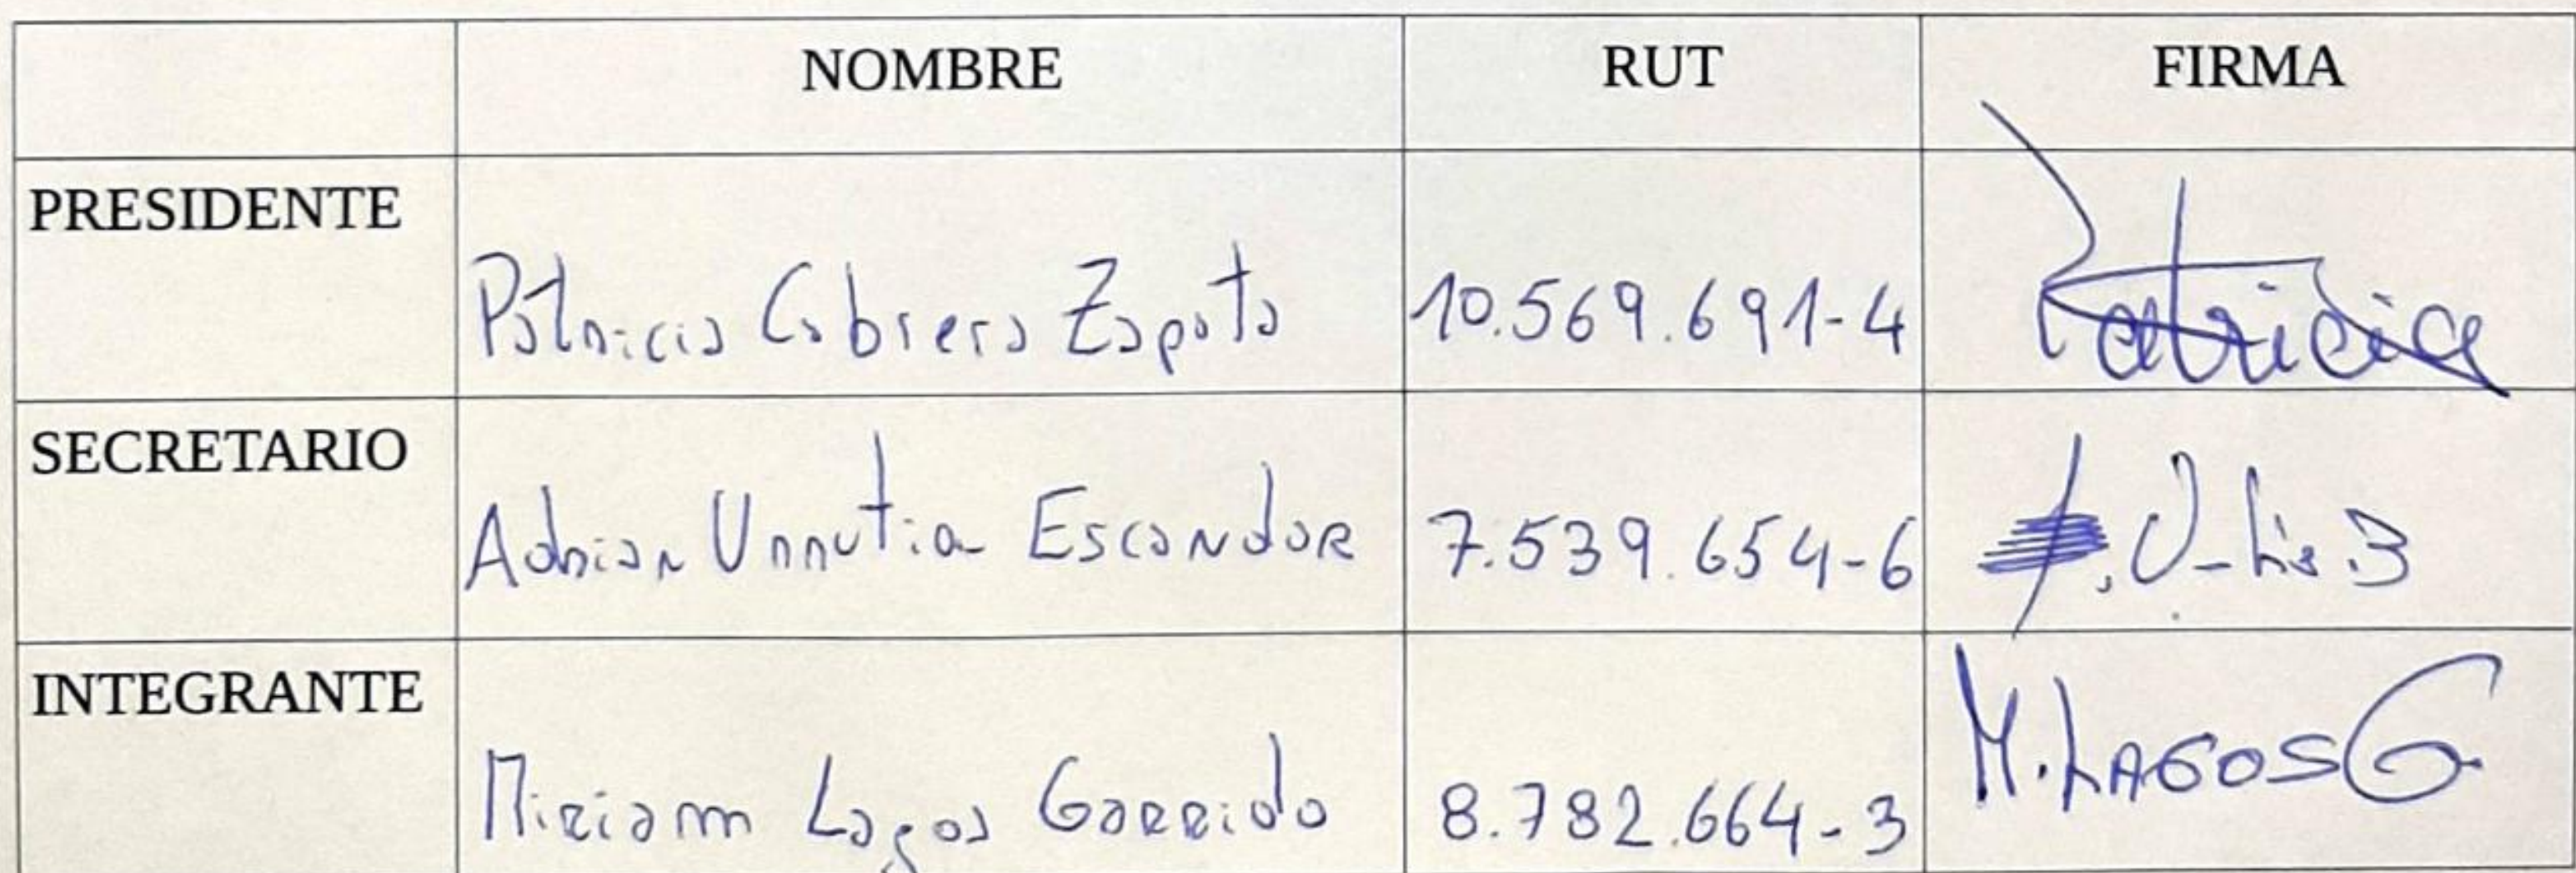 NOMBRE RUT FIRMA
PRESIDENTE
Patricia Cabrera Zapata 10.569.691-4 Patricia
SECRETARIO
Adrian Urrutia Escandar 7.539.654-6
INTEGRANTE
Miriam Lagos Garrido 8.782.664-3 M. LAGOS G